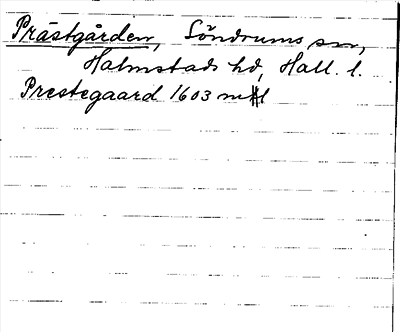 Prästgården, Söndrums sn,
Halmstads hd, Hall. l.
Prestegaard 1603 mtl